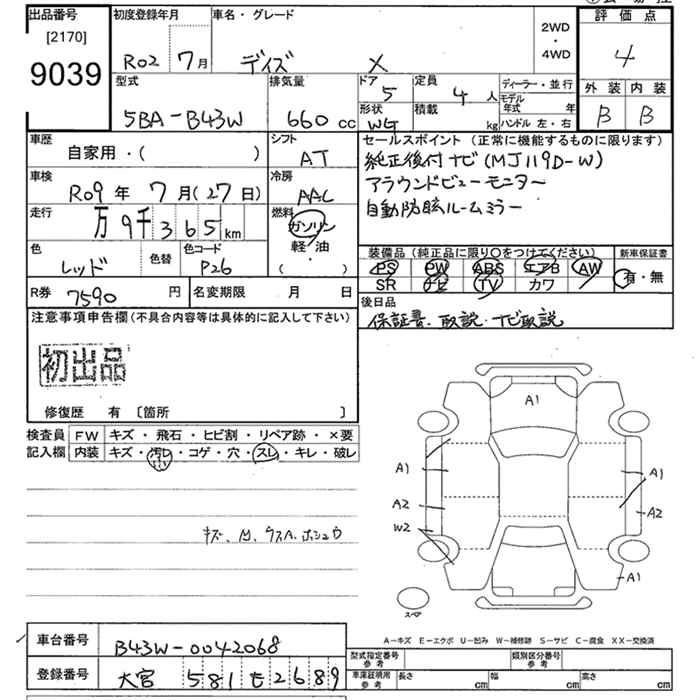 出品番号
[2170]
9039
初度登録年月
R02 7月
車名・グレード
デイズ X
2WD
・
4WD
評価点
4
型式
5BA-B43W
排気量
660 cc
ドア
5
形状
WG
定員
4 人
積載
kg
ディーラー・並行
モデル年式 年
ハンドル 左・右
外装 内装
B B
車歴
自家用・( )
シフト
AT
セールスポイント(正常に機能するものに限ります)
純正後付ナビ(MJ119D-W)
アラウンドビューモニター
自動防眩ルームミラー
車検
R09年 7月(27日)
冷房
AAC
走行
万 9千 365 km
燃料
ガソリン
軽・油
・( )
色
レッド
色替
色コード
P26
装備品(純正品に限り○をつけてください)
PS PW ABS エアB AW
SR ナビ TV カワ
新車保証書
有・無
R券 7590 円
名変期限 月 日
後日品
保証書、取説・ナビ取説
注意事項申告欄(不具合内容等は具体的に記入して下さい)
初出品
修復歴 有 〔箇所 〕
検査員 FW キズ・飛石・ヒビ割・リペア跡・×要
記入欄 内装 キズ・汚レ・コゲ・穴・スレ・キレ・破レ
A1
A1 A1
A2 A2
W2
A1
スペア
A-キズ E-エクボ U-凹み W-補修跡 S-サビ C-腐食 XX-交換済
車台番号 B43W-0042068
登録番号 大宮 581 も 2689
型式指定番号 参考
類別区分番号 参考
車庫証明用 参考
長さ cm 幅 cm 高さ cm